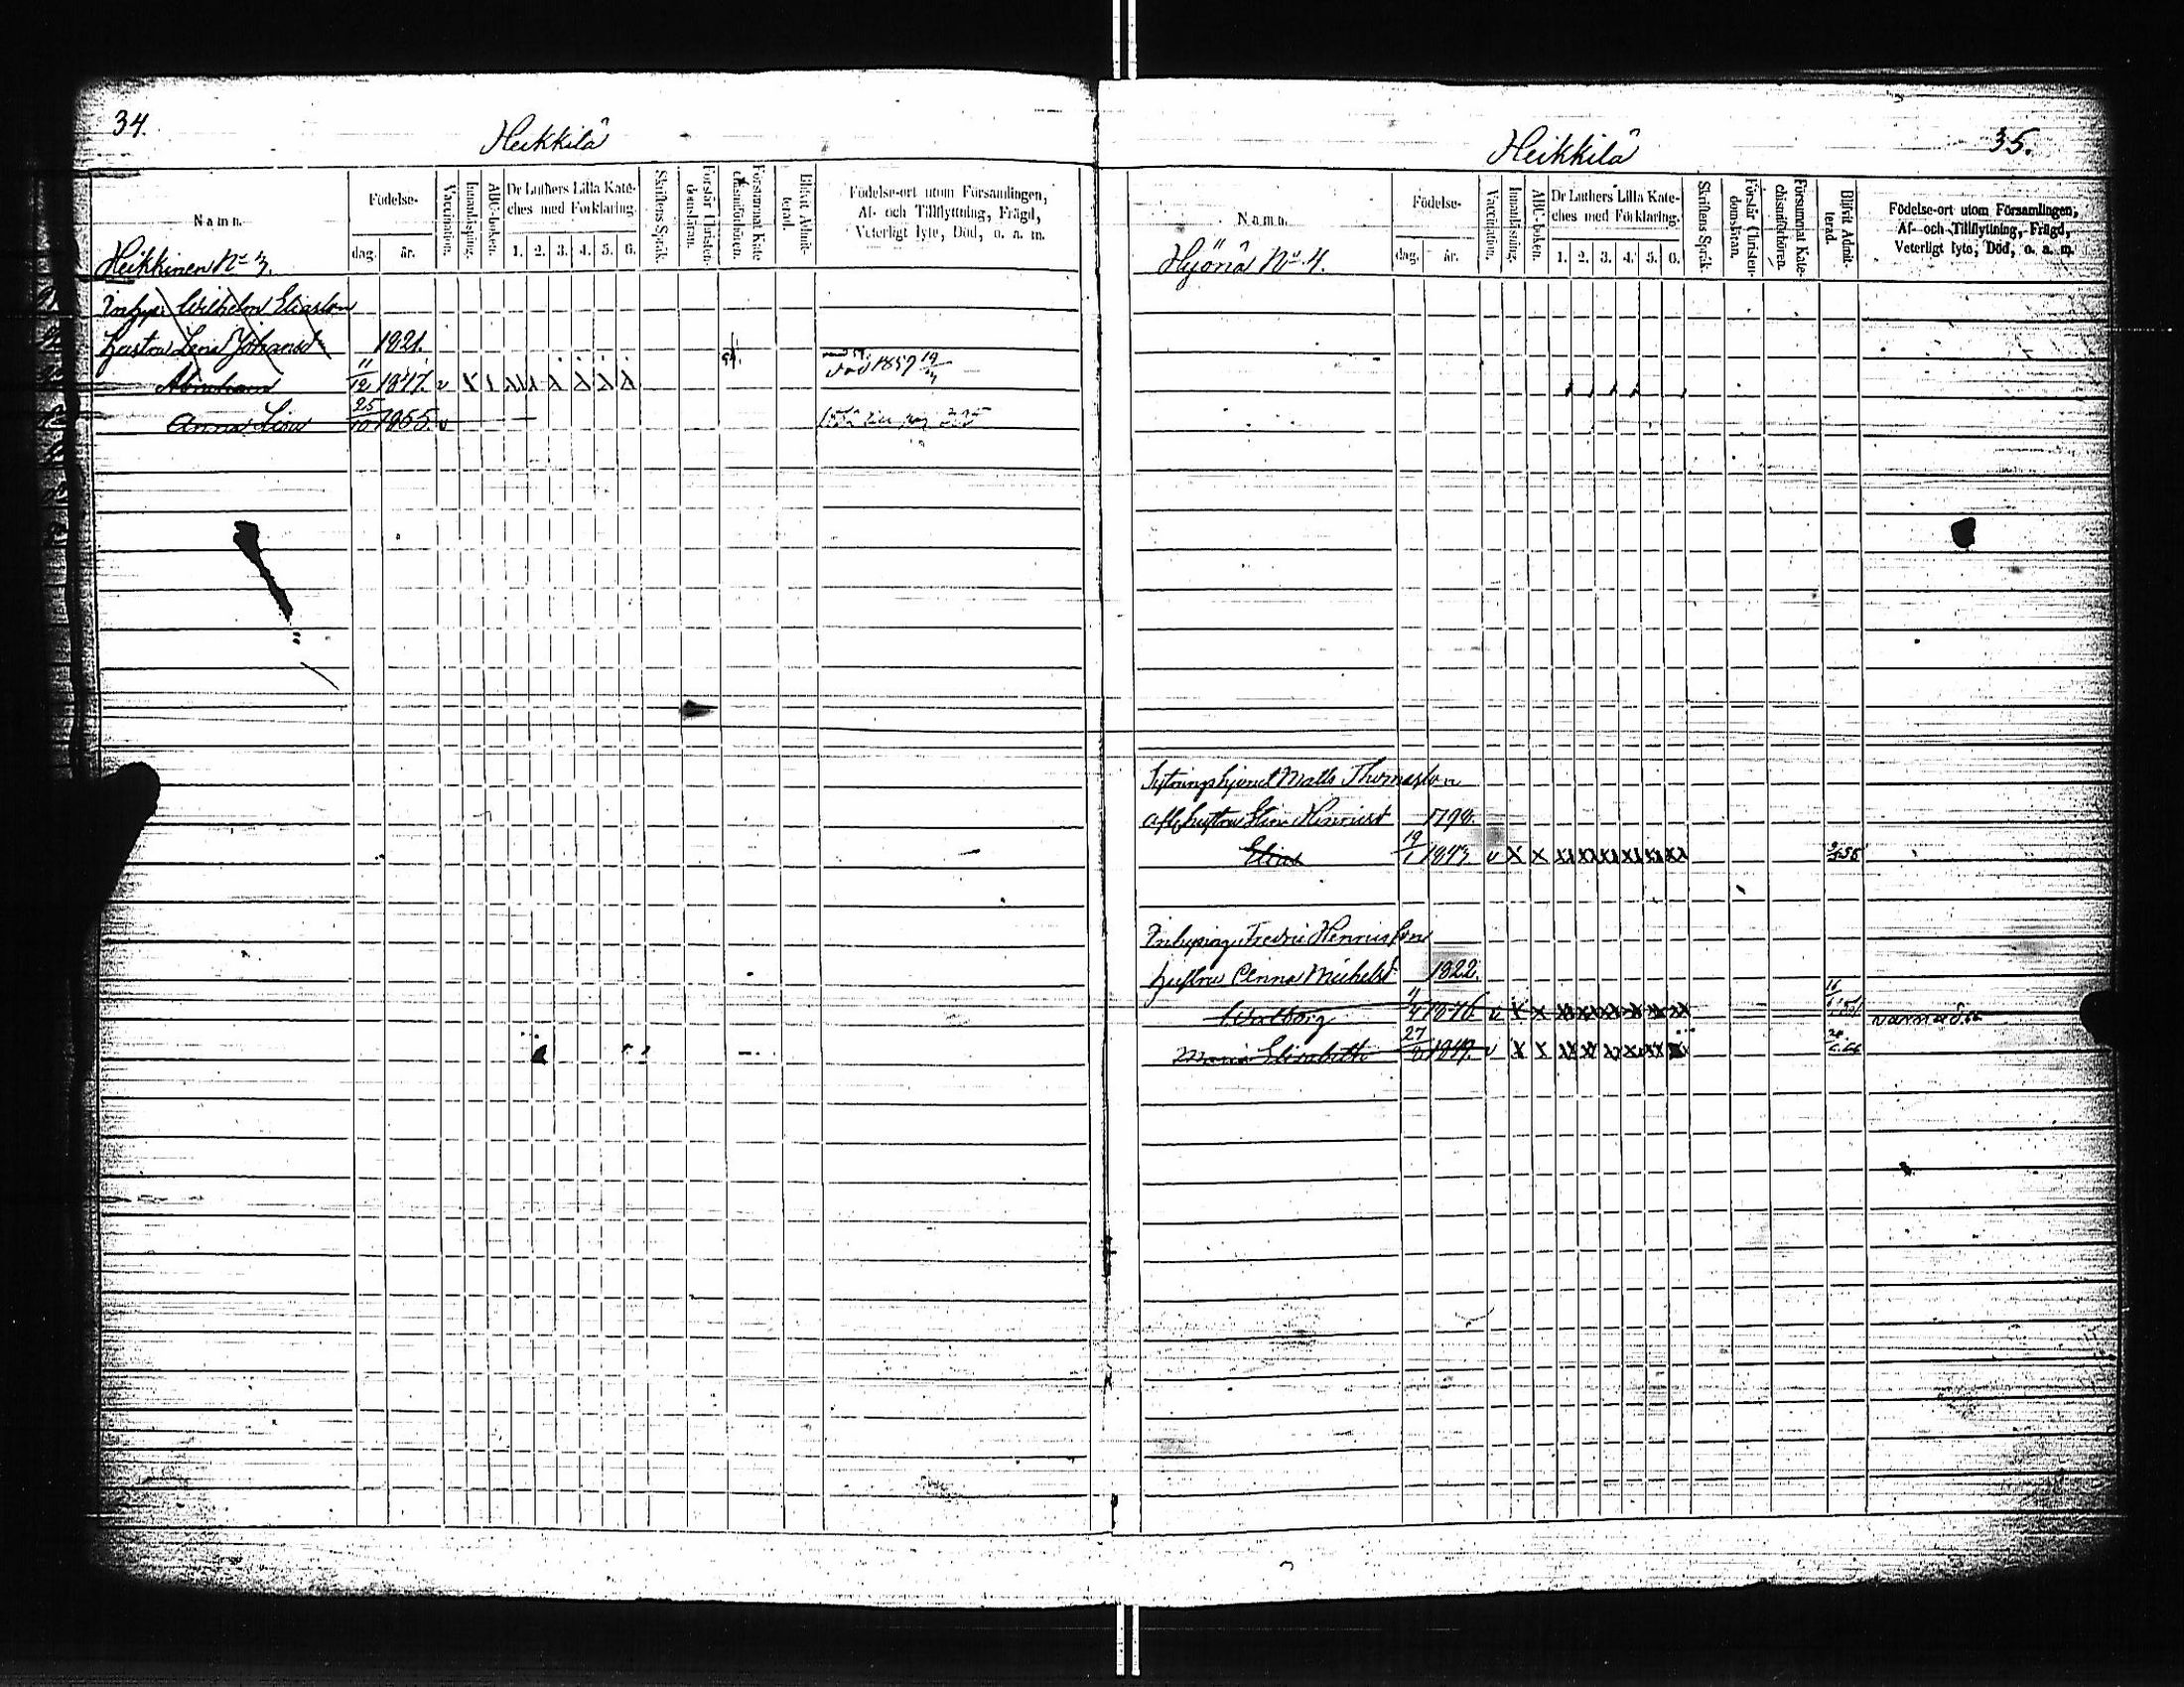 34.
Heikkilä
Namn.
Födelse-
dag.
år.
Vaccination.
Innanläsning.
ABC-boken.
Dr Luthers Lilla Kate-
ches med Förklaring.
1. 2. 3. 4. 5. 6.
Skriftens Språk.
Förstår Christen-
domsläran.
Försummat Kate
chismiförhören.
Blifvit Admit-
terad.
Födelse-ort utom Församlingen,
Af- och Tillflyttning, Frägd,
Veterligt lyte, Död, o. a. m.
Heikkinen No 3.
Inhys. Wilhelm Eliasson
hustru Lena Johansd 1821.
Abraham 11/12 1847. v
död 1857
Anna Lisa 25/10 1855. v
35.
Heikkilä
Namn.
Födelse-
dag.
år.
Vaccination.
Innanläsning.
ABC-boken.
Dr Luthers Lilla Kate-
ches med Förklaring.
1. 2. 3. 4. 5. 6.
Skriftens Språk.
Förstår Christen-
domsläran.
Försummat Kate-
chismiförhören.
Blifvit Admit-
terad.
Födelse-ort utom Församlingen,
Af- och Tillflyttning, Frägd,
Veterligt lyte, Död, o. a. m.
Hyönä No 4.
Sytningshjonet Matts Thomasson
hustru Stina 179
Elias 19/1 1843. v x x xx xx xx xx xx xx
Inhysing Fredric Henricsson
hustru Anna Michelsd 1822.
Walborg v x x xx xx xx xx xx xx
Maria Elisabeth v x x xx xx xx xx xx